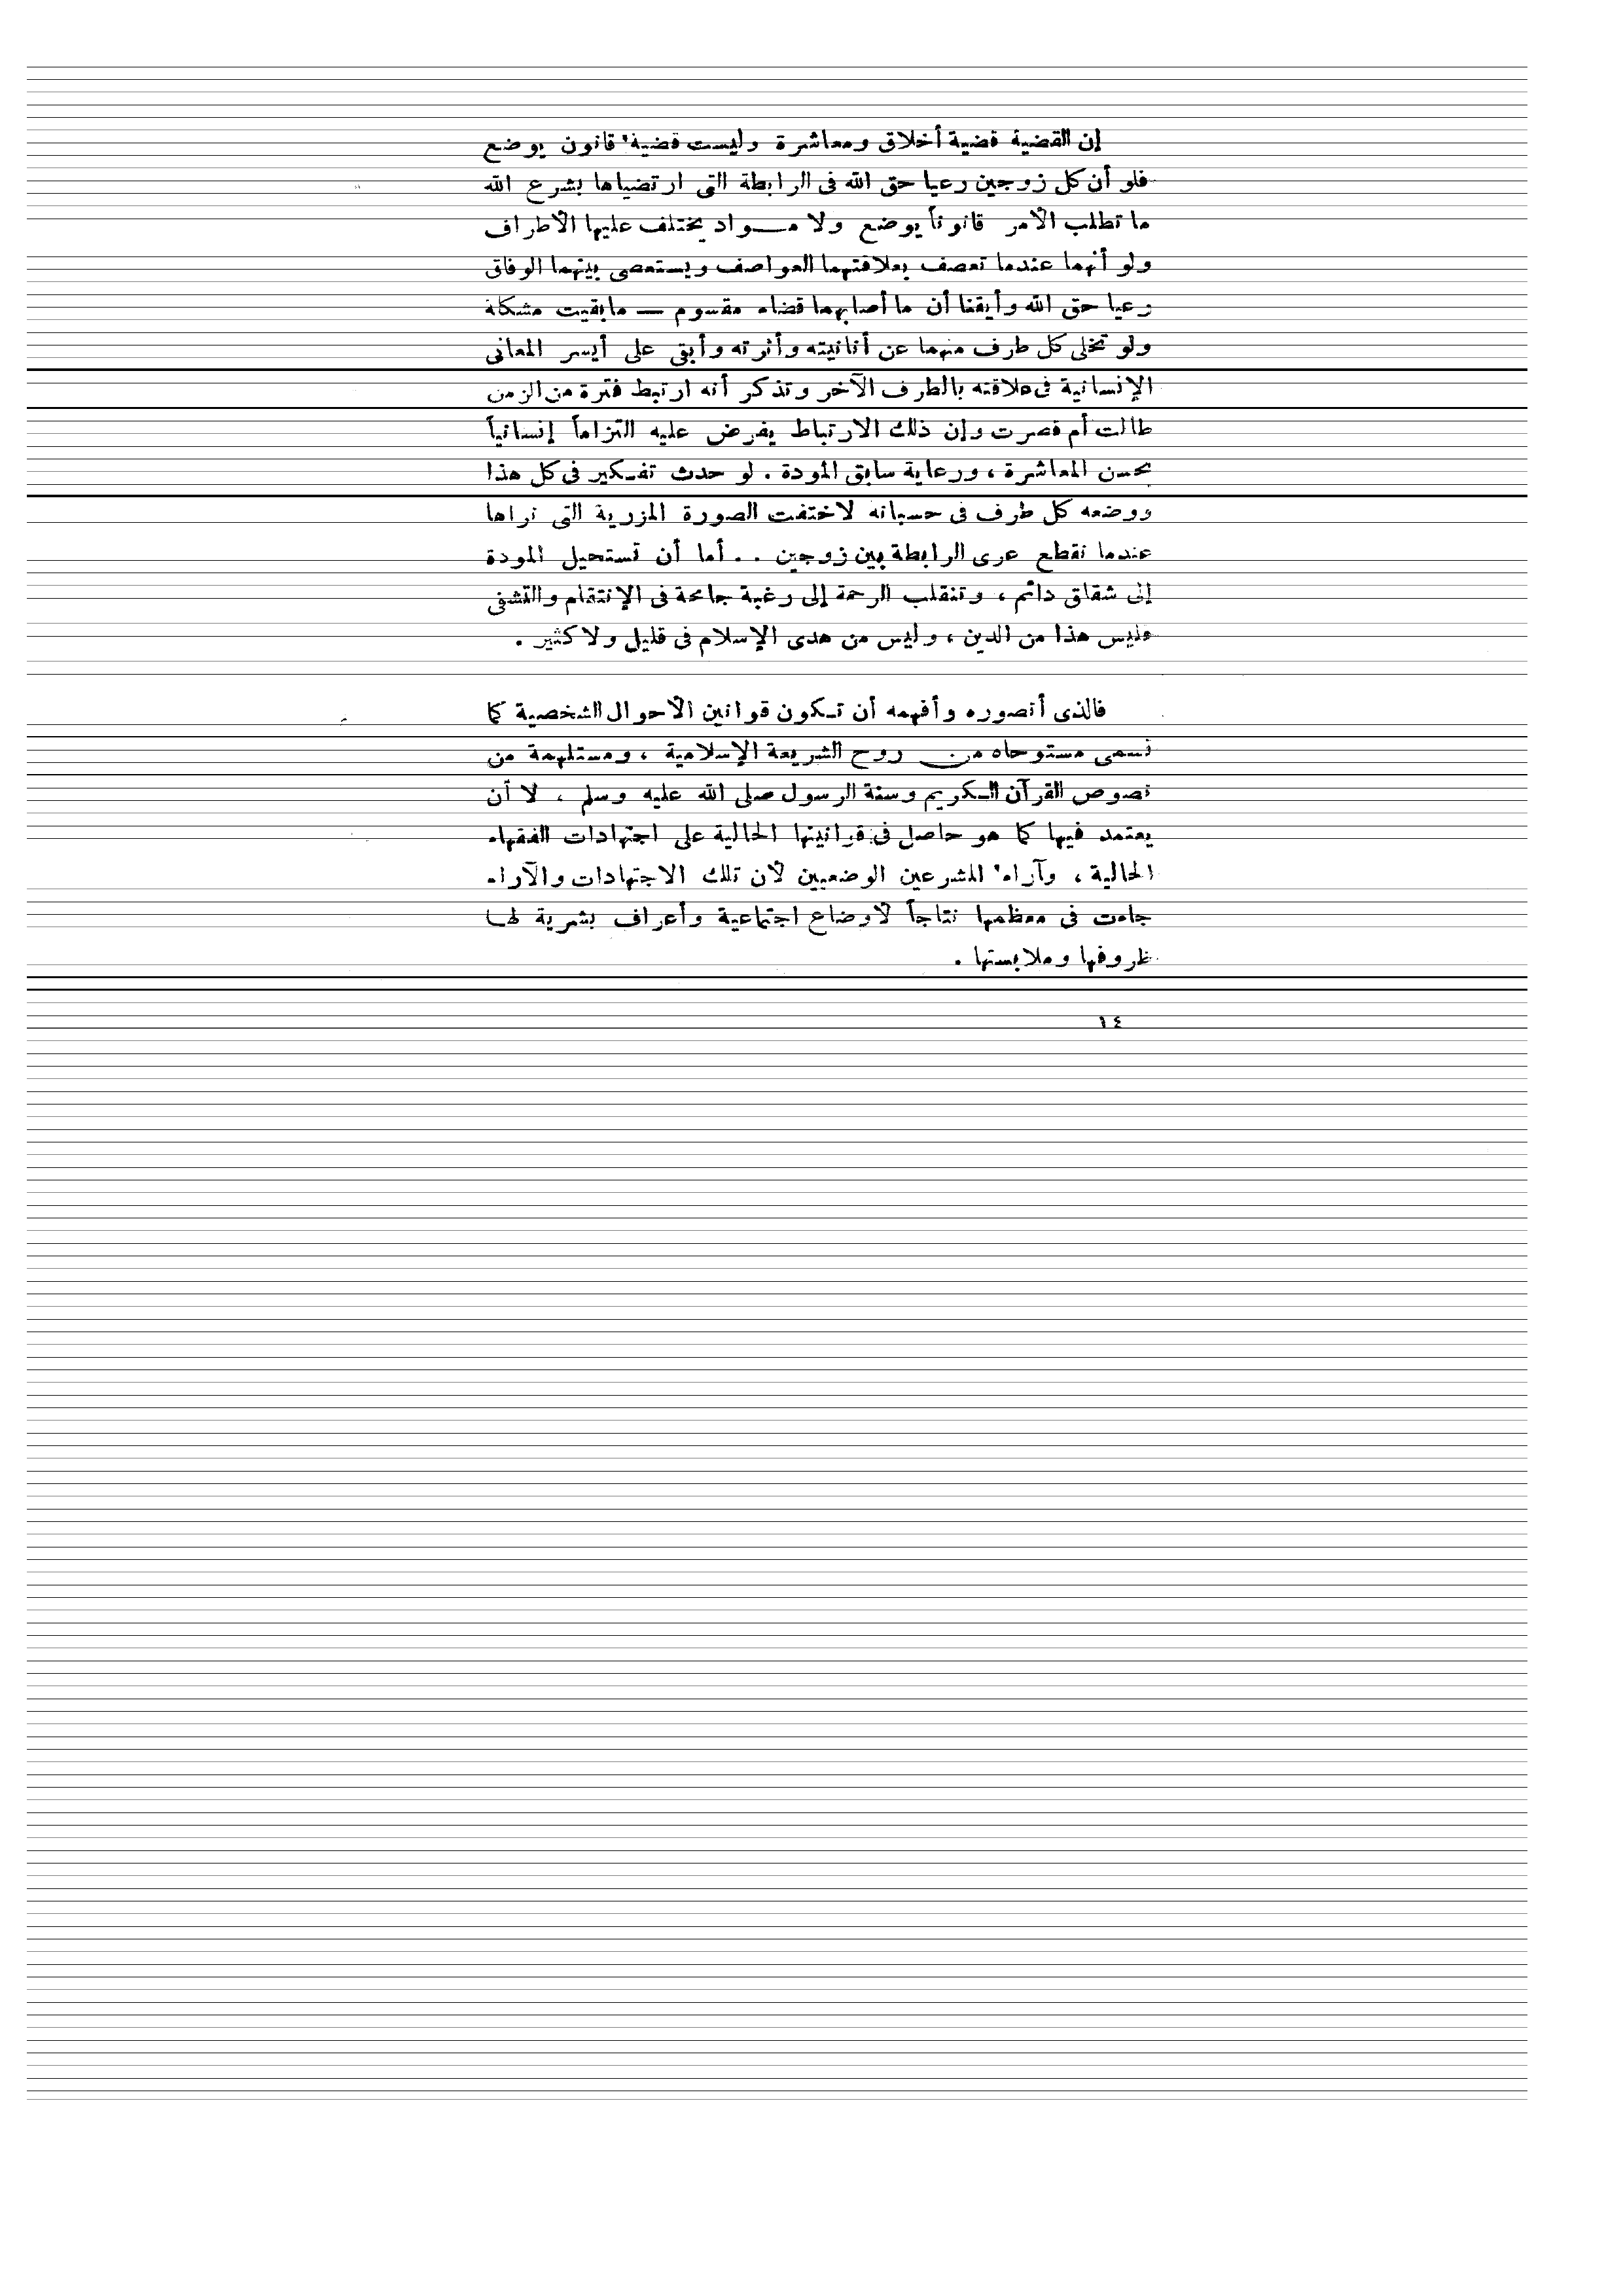 إن القضية قضية أخلاق ومعاشرة وليست قضية قانون يوضع
فلو أن كل زوجين رعيا حق الله فى الرابطة التى ارتضياها بشرع الله
ما تطلب الأمر قانوناً يوضع ولا مـــواد يختلف عليها الأطراف
ولو أنهما عندما تعصف بعلاقتهما العواصف ويستعصى بينهما الوفاق
رعيا حق الله وأيقنا أن ما أصابهما قضاء مقسوم — مابقيت مشكلة
ولو تخلى كل طرف منهما عن أنانيته وأثرته وأبقى على أيسر المعانى
الإنسانية فى علاقته بالطرف الآخر وتذكر أنه ارتبط فترة من الزمن
طالت أم قصرت وإن ذلك الارتباط يفرض عليه التزاماً إنسانياً
بحسن المعاشرة ، ورعاية سابق المودة . لو حدث تفـكير فى كل هذا
ووضعه كل طرف فى حسبانه لاختفت الصورة المزرية التى نراها
عندما نقطع عرى الرابطة بين زوجين . . أما أن تستحيل المودة
إلى شقاق دائم ، وتنقلب الرحمة إلى رغبة جامحة فى الإنتقام والتشفى
فليس هذا من الدين ، وليس من هدى الإسلام فى قليل ولا كثير .
فالذى أتصوره وأفهمه أن تـكون قوانين الأحوال الشخصية كما
تسمى مستوحاه من روح الشريعة الإسلامية ، ومستلهمة من
نصوص القرآن الـكريم وسنة الرسول صلى الله عليه وسلم ، لا أن
يعتمد فيها كما هو حاصل فى قوانيتها الحالية على اجتهادات الفقهاء
الحالية ، وآراء المشرعين الوضعيين لأن تلك الاجتهادات والآراء
جاءت فى معظمها نتاجاً لأوضاع اجتماعية وأعراف بشرية لهـا
ظروفها وملابستها .
١٤